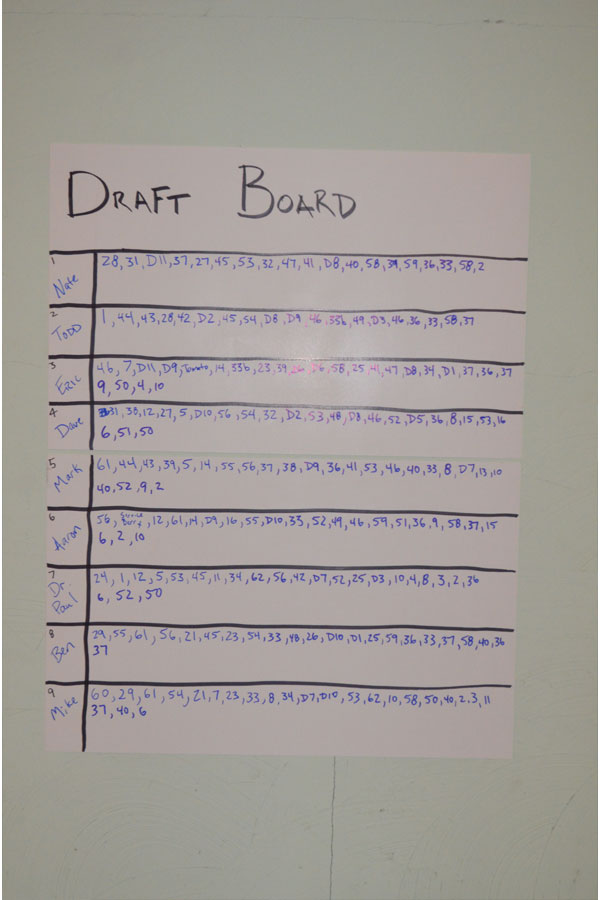 DRAFT BOARD
1
Nate
28, 31, D11, 37, 27, 45, 53, 32, 47, 41, D8, 40, 58, 39, 59, 36, 33, 58, 2
2
TODD
1, 44, 43, 28, 42, D2, 45, 54, D8, D9, 46, 33b, 49, D3, 46, 36, 33, 58, 37
3
ERIC
46, 7, D11, D9, Tomato, 14, 33b, 23, 39, 26, D6, 58, 25, 41, 47, D8, 34, D1, 37, 36, 37
9, 50, 4, 10
4
Dave
31, 38, 12, 27, 5, D10, 56, 54, 32, D2, 53, 48, D8, 46, 52, D5, 36, 8, 15, 53, 16
6, 51, 50
5
Mark
61, 44, 43, 39, 5, 14, 55, 56, 37, 38, D9, 36, 41, 53, 46, 40, 33, 8, D7, 13, 10
40, 52, 9, 2
6
Aaron
56, 12, 61, 14, D9, 16, 55, D10, 33, 52, 49, 46, 59, 51, 36, 9, 58, 37, 15
6, 2, 10
7
Dr.
Paul
24, 1, 12, 5, 53, 45, 11, 34, 62, 56, 42, D7, 52, 25, D3, 10, 4, 8, 3, 2, 36
6, 52, 50
8
Ben
29, 55, 61, 56, 21, 45, 23, 54, 33, 48, 26, D10, D1, 25, 59, 36, 33, 37, 58, 40, 36
37
9
Mike
60, 29, 61, 54, 21, 7, 23, 33, 8, 34, D7, D10, 53, 62, 10, 58, 50, 40, 2, 3, 11
37, 40, 6